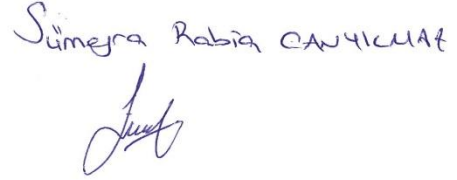 Sümeyra Rabia CANYILMAZ